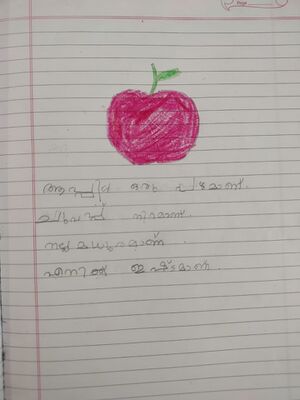 ആപ്പിൾ ഒരു പഴമാണ്.
ചുവപ്പ് നിറമാണ്
നല്ല മധുരമാണ്.
എനിക്ക് ഇഷ്ടമാണ്.